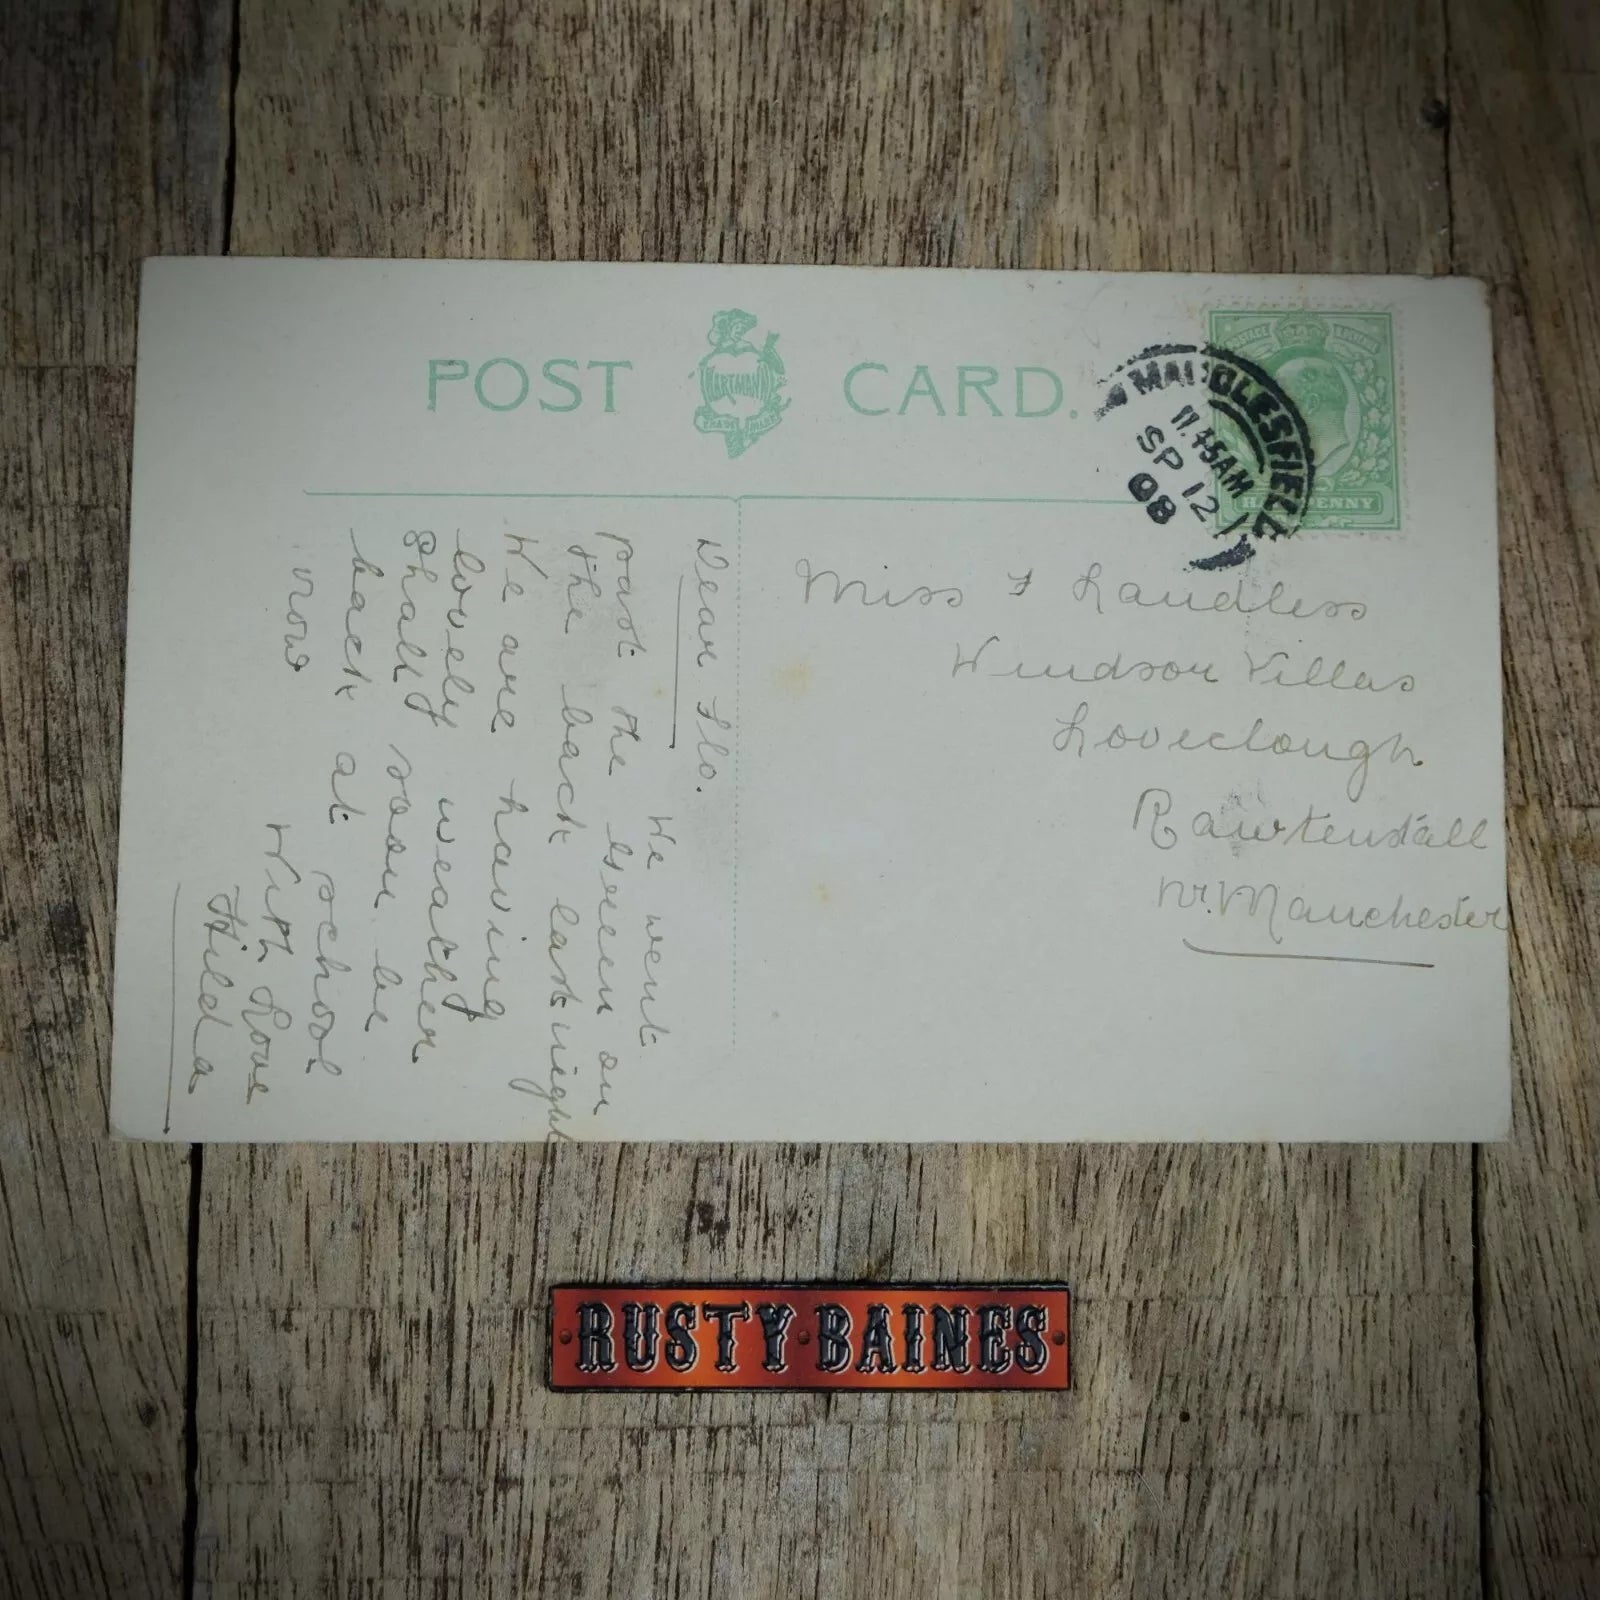 POST CARD.
HARTMANN
TRADE MARK
POSTAGE & REVENUE
HALFPENNY
MACCLESFIELD
11.45AM
SP 12
08
Miss F Landless
Windsor Villas
Loveclough
Rawtenstall
nr. Manchester
Dear Flo.
We went
past the Green on
the back last night
We are having
lovely weather
Shall soon be
back at school
now
With Love
Hilda
RUSTY·BAINES